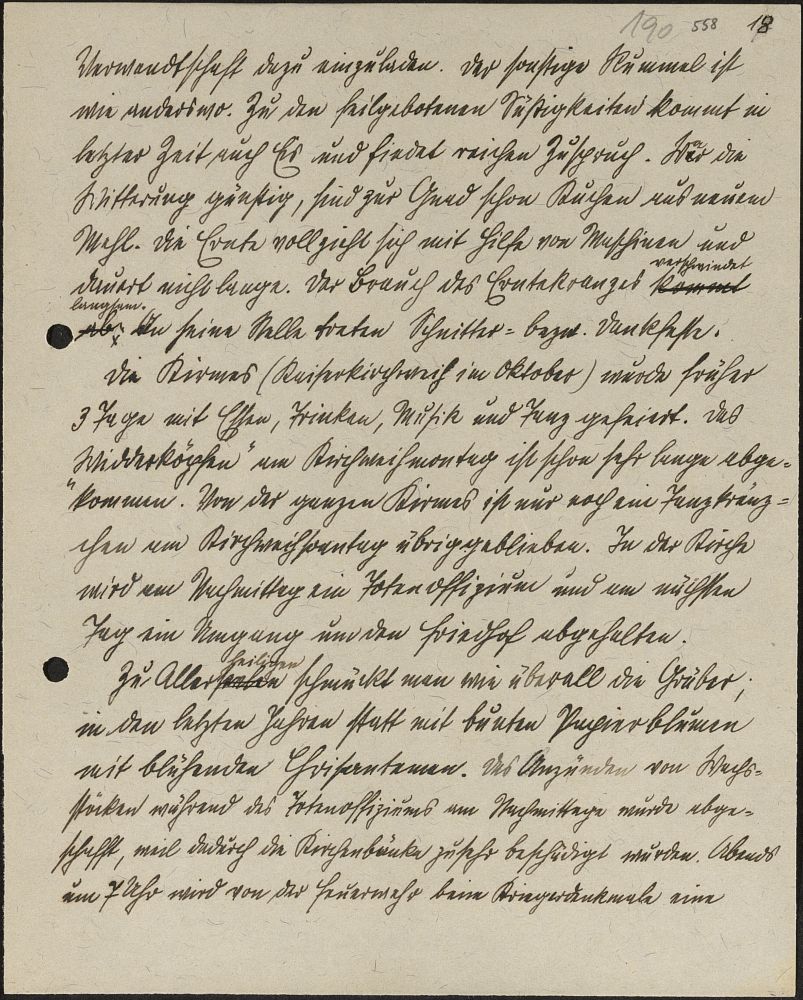 190 558 18
Verwandtschaft dazu einzuladen. Der sonstige Rummel ist
wie anderswo. Zu den feilgebotenen Süßigkeiten kommt in
letzter Zeit auch Eis und findet reichen Zuspruch. War die
Witterung günstig, sind zur Gnad schon Kuchen aus neuem
Mehl. Die Ernte vollzieht sich mit Hilfe von Maschinen und
dauert nicht lange. Der Brauch des Erntekranzes kommt verschwindet
ab. langsam. An seine Stelle treten Schnitter- bezw. Dankfeste.
Die Kirmes (Kaiserkirchweih im Oktober) wurde früher
3 Tage mit Essen, Trinken, Musik und Tanz gefeiert. Das
"Widderköpfen" am Kirchweihmontag ist schon sehr lange abge-
kommen. Von der ganzen Kirmes ist nur noch ein Tanzkränz-
chen am Kirchweihsonntag übriggeblieben. In der Kirche
wird am Nachmittag ein Totenoffizium und am nächsten
Tag ein Umgang um den Friedhof abgehalten.
Zu Allerseelen heiligen schmückt man wie überall die Gräber,
in den letzten Jahren statt mit bunten Papierblumen
mit blühenden Chrisantemen. Das Anzünden von Wachs-
stöcken während des Totenoffiziums am Nachmittage wurde abge-
schafft, weil dadurch die Kirchenbänke zu sehr beschädigt wurden. Abends
um 7 Uhr wird von der Feuerwehr beim Kriegerdenkmale eine